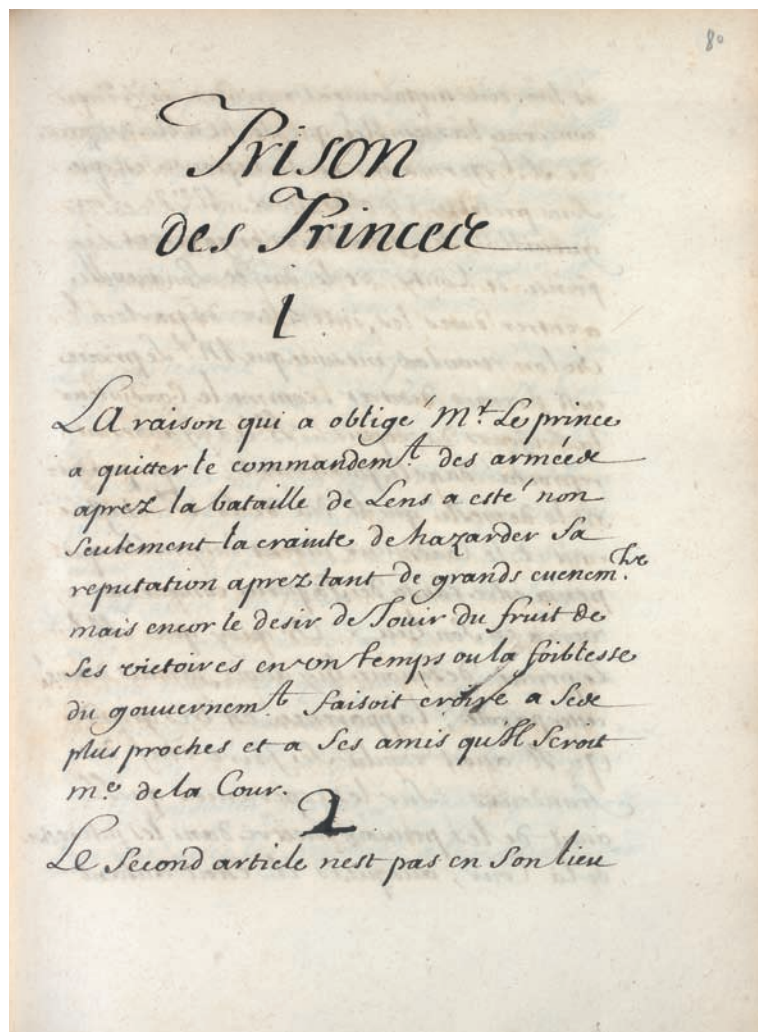 80
Prison
des Princes
1
LA raison qui a obligé Mr. Le prince
a quitter le commandemt. des armées
aprez la bataille de Lens a esté non
seulement la crainte de hazarder sa
reputation aprez tant de grands evenem.ts
mais encor le desir de Jouir du fruit de
ses victoires en un temps ou la foiblesse
du gouvernemt. faisoit croire a ses
plus proches et a ses amis qu'Il seroit
me. de la Cour.
2
Le second article nest pas en son lieu